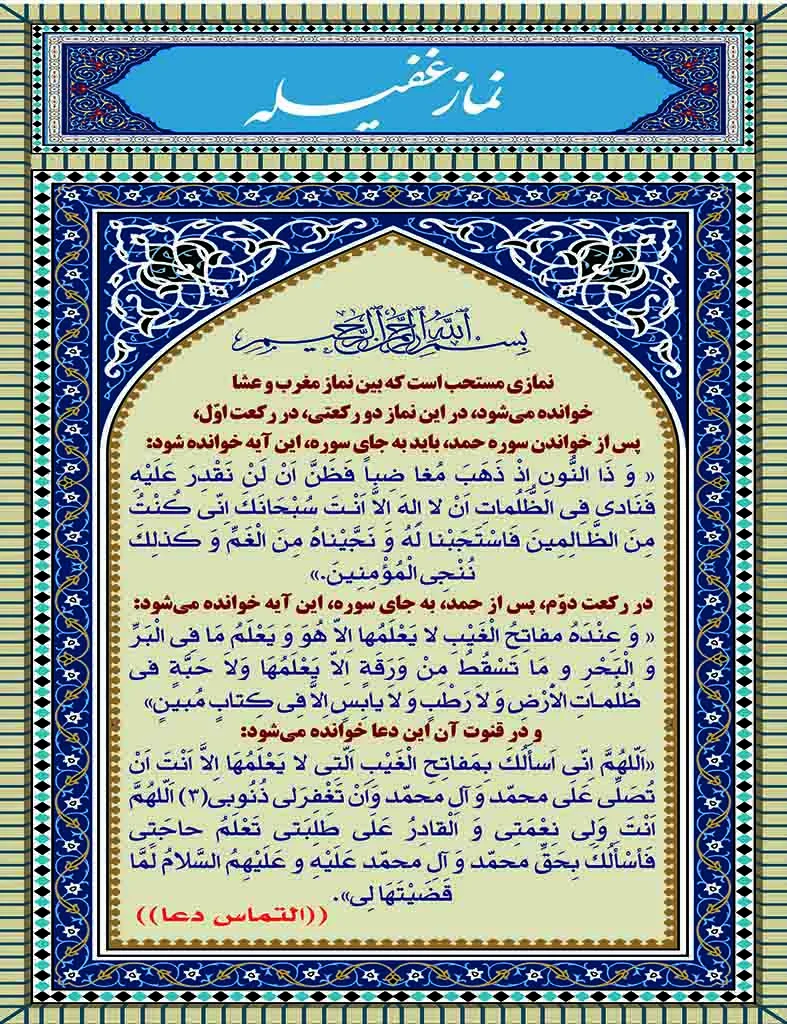 نماز غفیله
بسم الله الرحمن الرحیم
نمازی مستحب است که بین نماز مغرب و عشا
خوانده می‌شود، در این نماز دو رکعتی، در رکعت اوّل،
پس از خواندن سوره حمد، باید به جای سوره، این آیه خوانده شود:
« وَ ذَا النُّونِ اِذْ ذَهَبَ مُغا ضباً فَظَنَّ اَنْ لَنْ نَقْدِرَ عَلَیْهِ
فَنادی فِی الظُّلُماتِ اَنْ لا اِلهَ اِلاَّ اَنْتَ سُبْحَانَكَ انّی كُنْتُ
مِنَ الظَّالِمِینَ فَاسْتَجَبْنا لَهُ وَ نَجَّیْناهُ مِنَ الْغَمِّ وَ كَذلِكَ
نُنْجِی الْمُؤْمِنِینَ.»
در رکعت دوّم، پس از حمد، به جای سوره، این آیه خوانده می‌شود:
« وَ عِنْدَهُ مفاتِحُ الْغَیْبِ لا یَعْلَمُها اِلاّ هُوَ وَ یَعْلَمُ مَا فِی الْبَرِّ
وَ الْبَحْرِ و مَا تَسْقُط مِنْ وَرَقَةٍ اِلاّ یَعْلَمُهَا وَلا حَبَّةٍ فی
ظُلُماتِ الأرْضِ وَ لا رَطْبٍ وَ لا یابِسٍ اِلاَّ فی كِتابٍ مُبینٍ»
و در قنوت آن این دعا خوانده می‌شود:
«اَللّهُمَّ اِنّی اَسأَلُكَ بِمَفاتِحِ الْغَیْبِ الَّتی لا یَعْلَمُهَا اِلاَّ اَنْتَ اَنْ
تُصَلی عَلی محمّد وَ آلِ محمّد وَاَنْ تَغْفِرَلی ذُنُوبی(۳) اَللّهُمَّ
اَنْتَ وَلِی نِعْمَتِی وَ الْقادِرُ عَلَی طَلِبَتی تَعْلَمُ حاجَتِی
فَأسْأَلُكَ بِحَقِّ محمّد وَ آلِ محمّد عَلَیْهِ و عَلَیْهِمُ السَّلامُ لَمَّا
قَضَیْتَهَا لِی».
((التماس دعا))